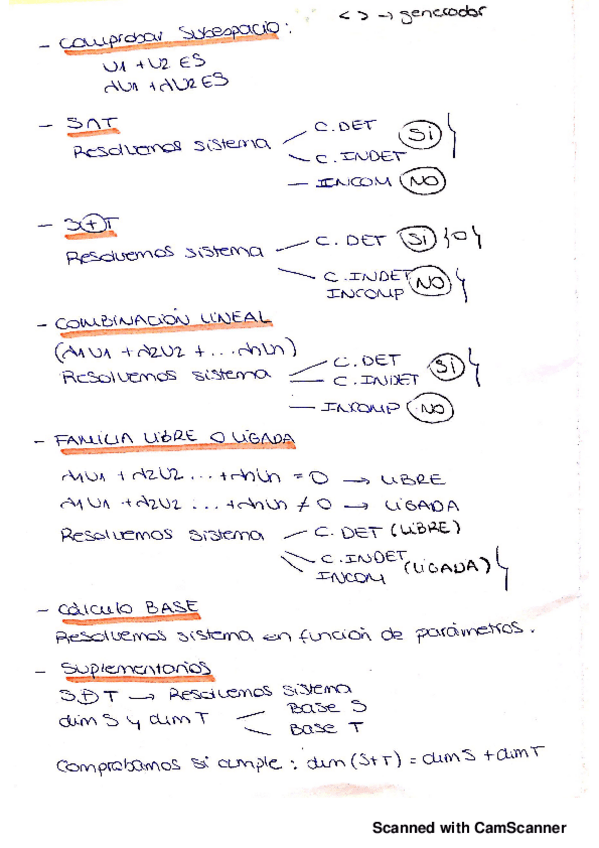 < > → generador
- Comprobar Subespacio:
U1 + U2 ES
λU1 + λU2 ES
- S∩T
Resolvemos sistema
C. DET
SI
C. INDET
INCOM NO
- S⊕T
Resolvemos sistema
C. DET SI {0}
C. INDET
INCOMP
NO
- COMBINACIÓN LINEAL
(λ1U1 + λ2U2 + ... λnUn)
Resolvemos sistema
C. DET
C. INDET
SI
INCOMP NO
- FAMILIA LIBRE O LIGADA
λ1U1 + λ2U2 ... + λnUn = 0 → LIBRE
λ1U1 + λ2U2 ... + λnUn ≠ 0 → LIGADA
Resolvemos sistema
C. DET (LIBRE)
C. INDET
INCOM
(LIGADA)
- Cálculo BASE
Resolvemos sistema en función de parámetros.
- Suplementarios
S⊕T → Resolvemos sistema
dim S y dim T
Base S
Base T
Comprobamos si cumple: dim (S+T) = dim S + dim T
Scanned with CamScanner